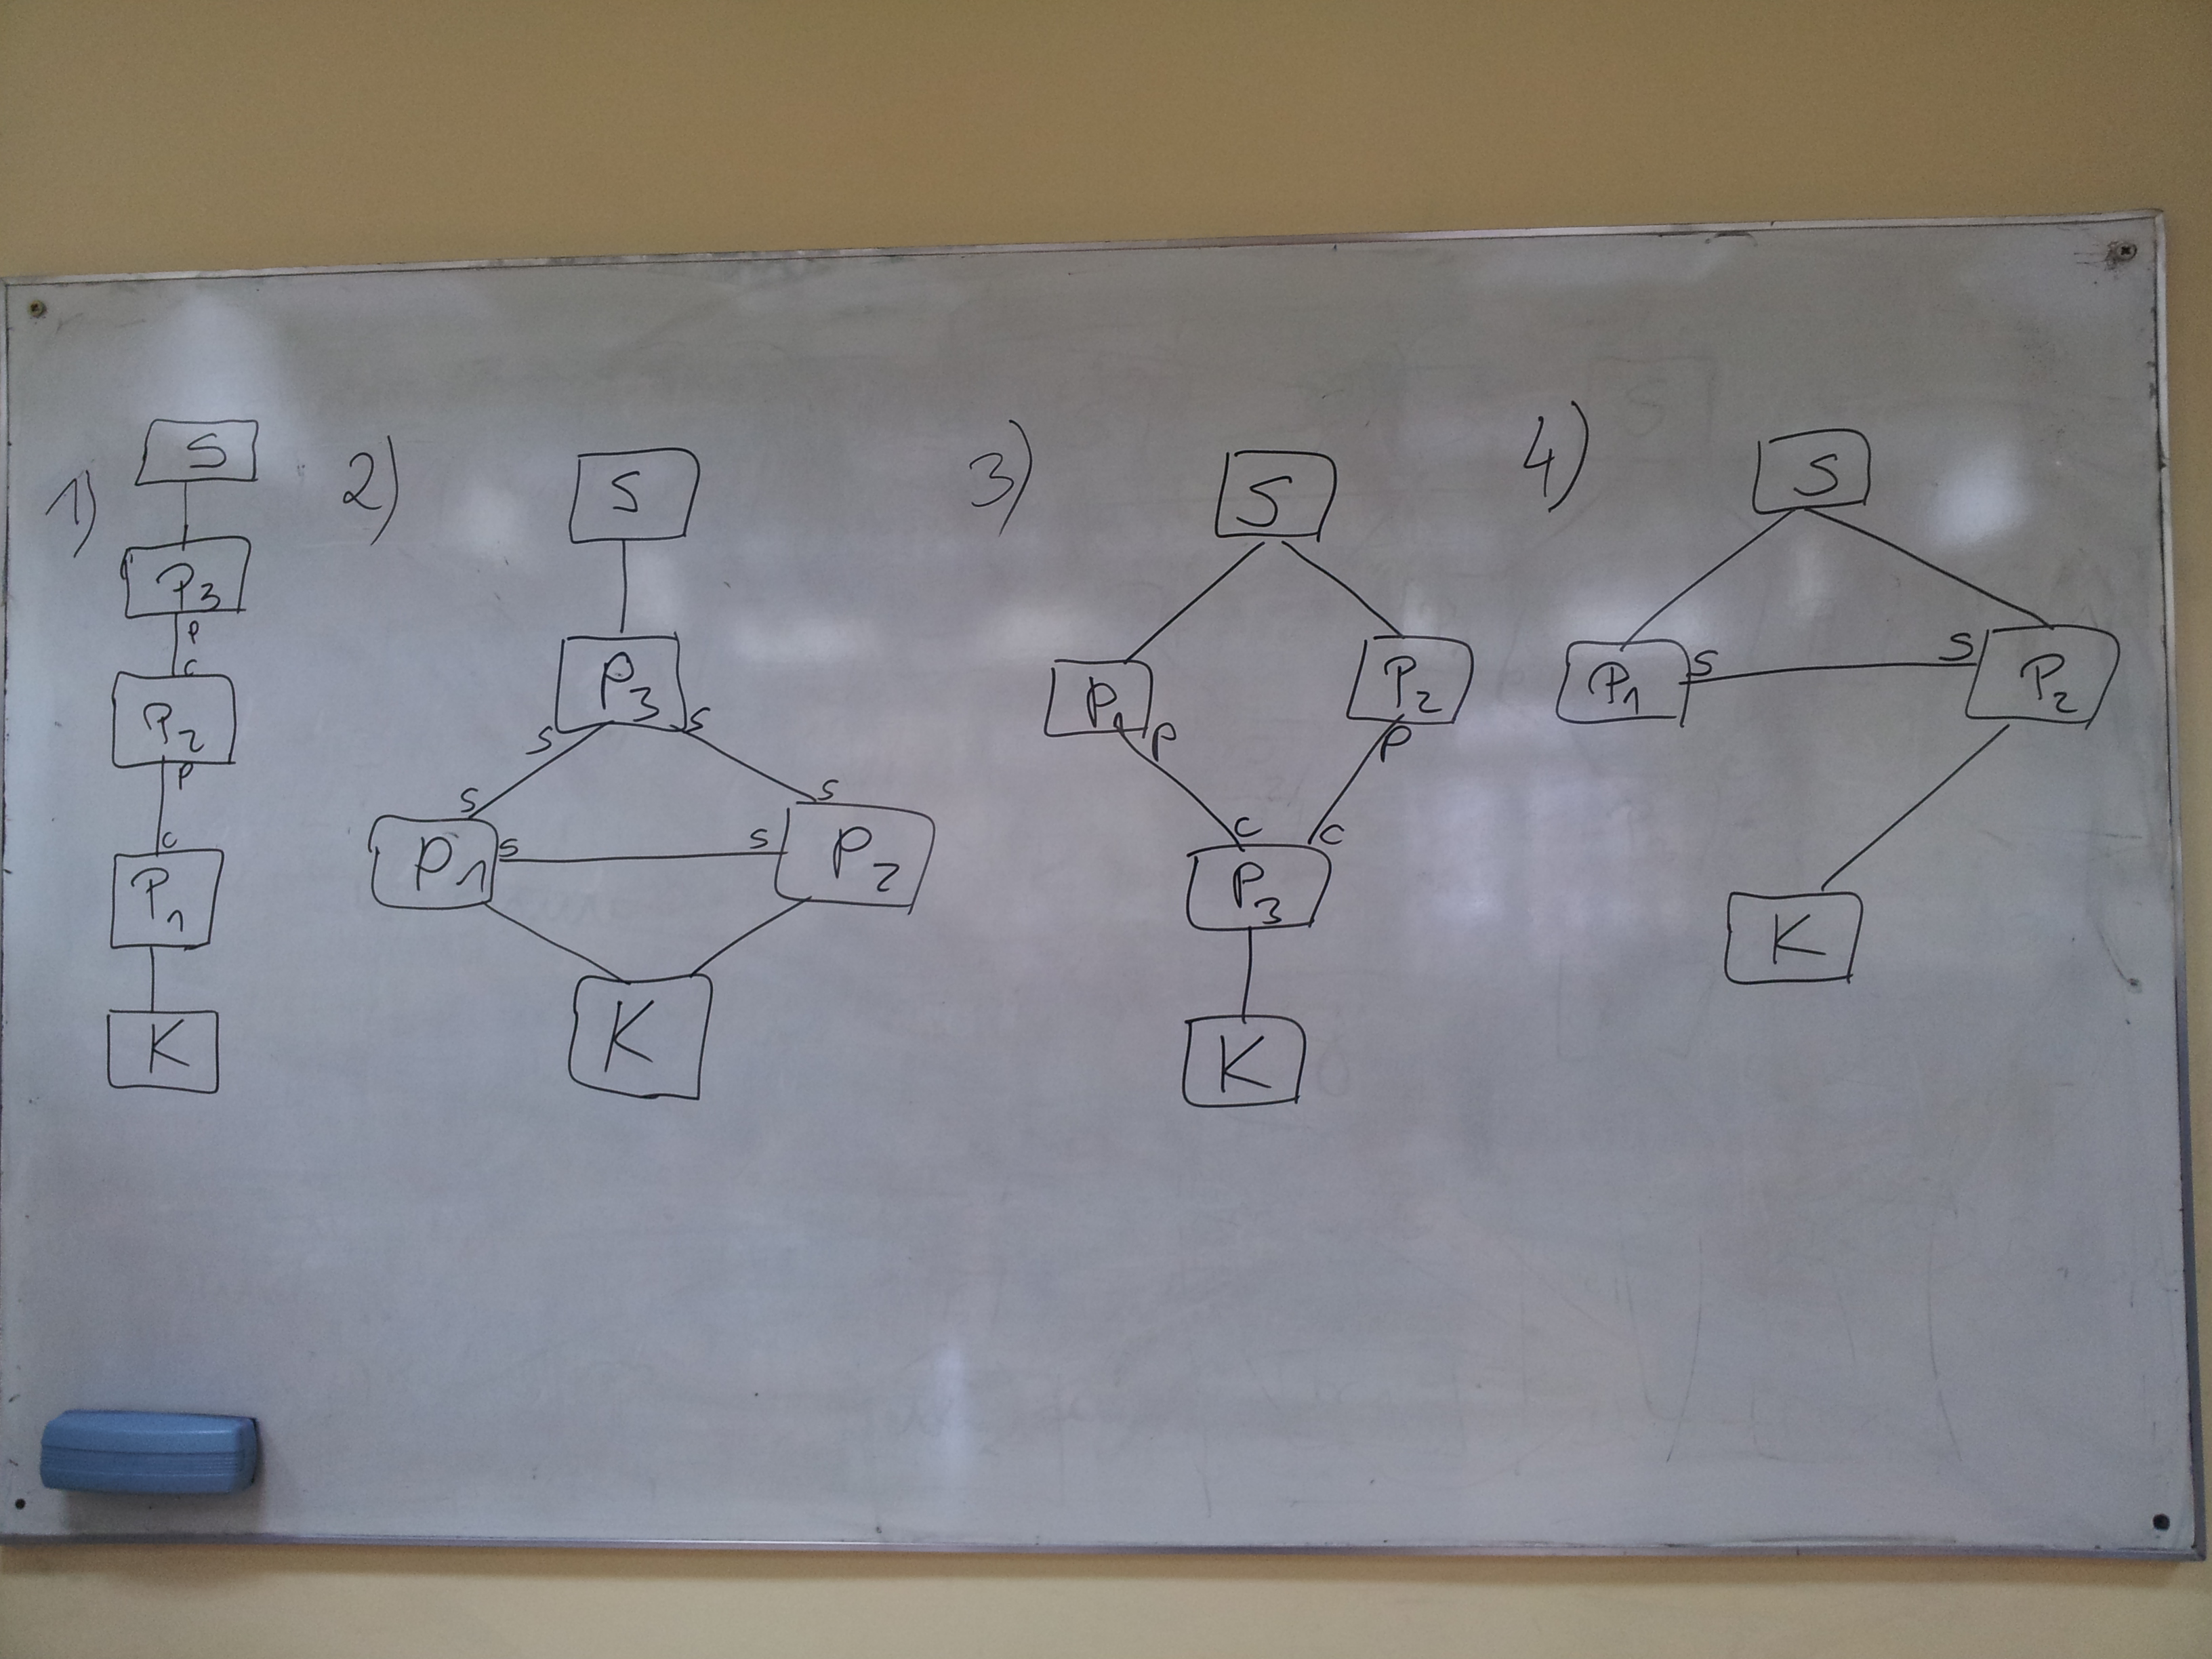 1)
S
P3
P
C
P2
P
C
P1
K
2)
S
P3
S S
S S
P1 S S P2
K
3)
S
P1 P2
P P
C C
P3
K
4)
S
P1 S S P2
K